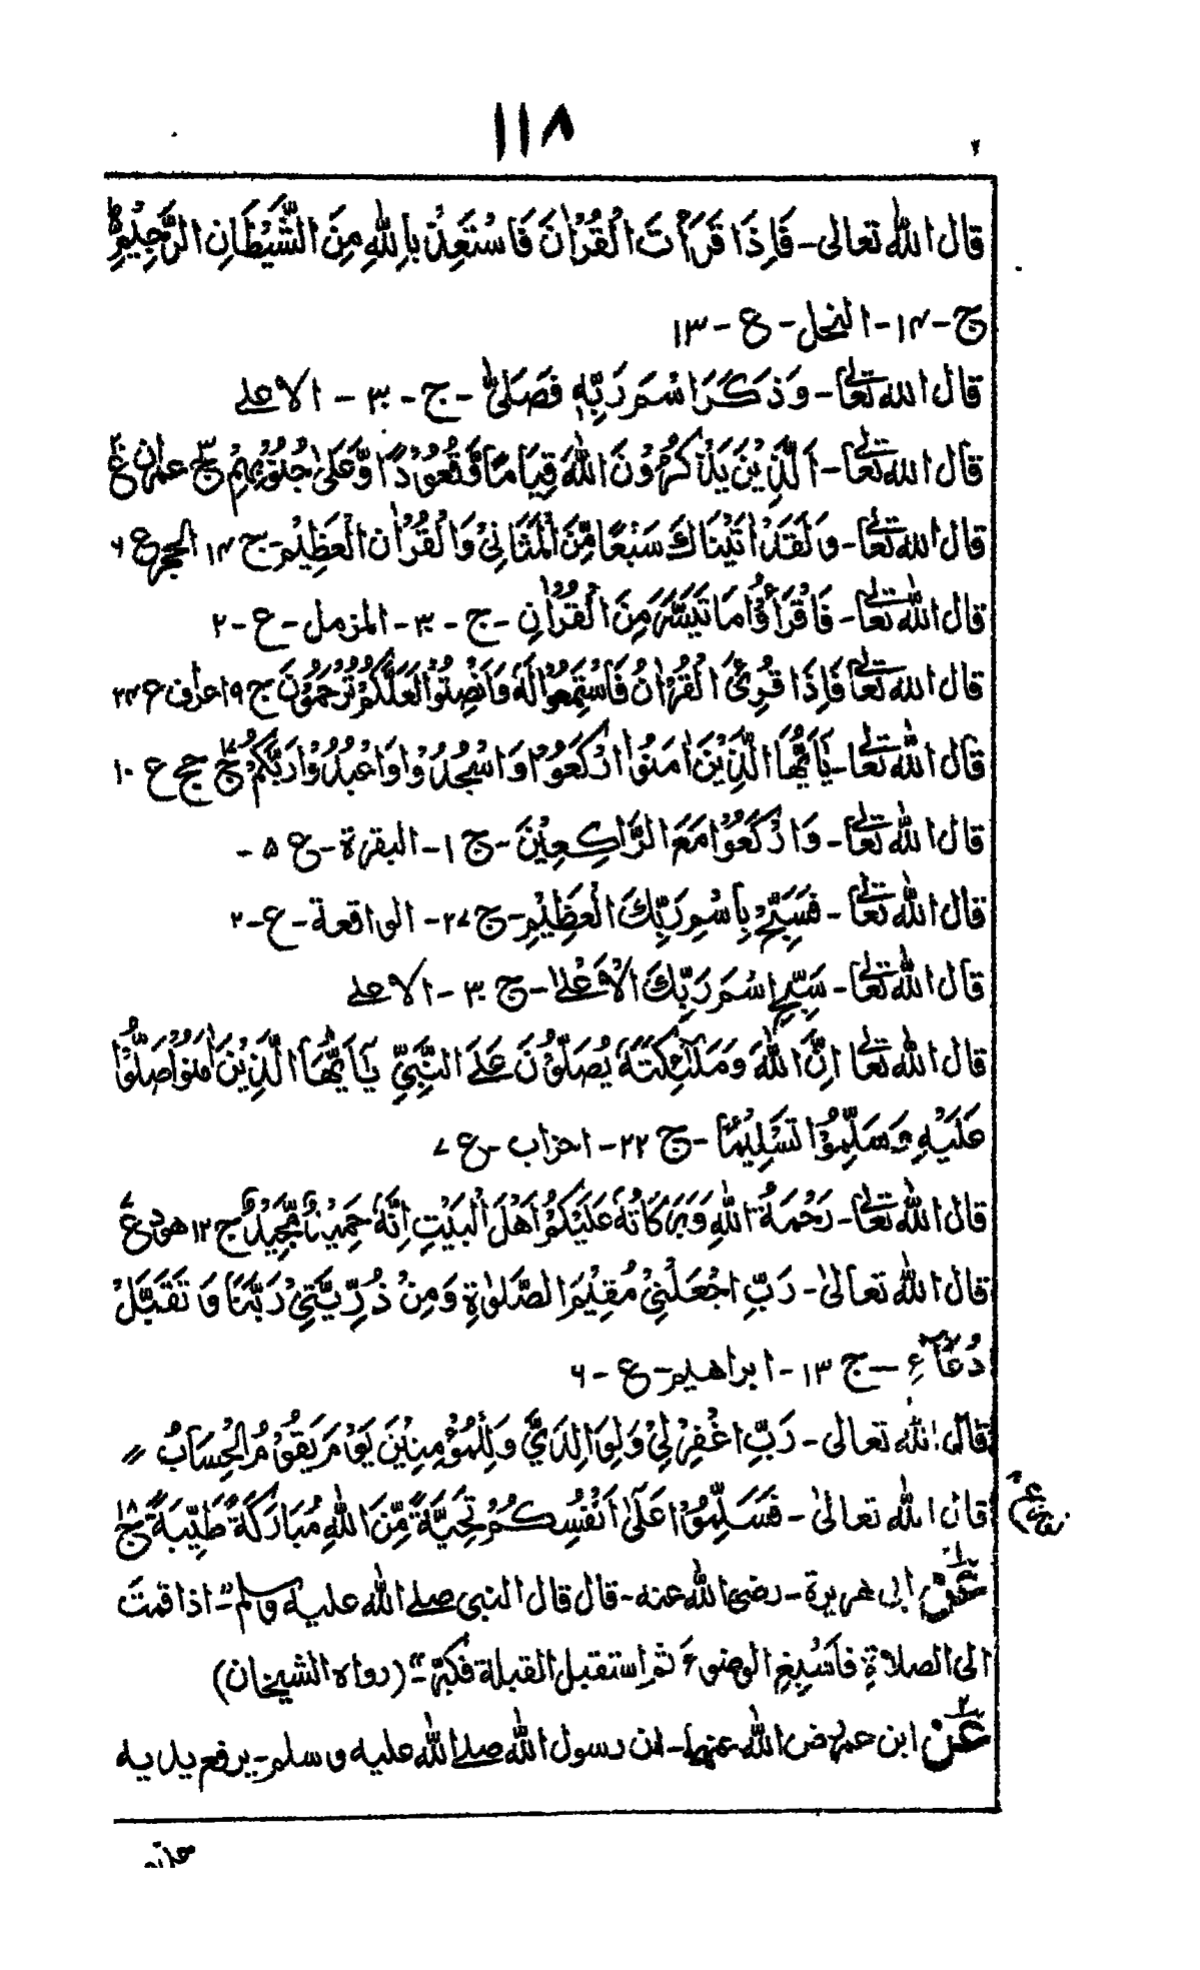 ١١٨
قال الله تعالى - فَاِذَا قَرَأْتَ الْقُرْاٰنَ فَاسْتَعِذْ بِاللّٰهِ مِنَ الشَّيْطَانِ الرَّجِيْمِ ط
ج - ١٤ - النحل - ع - ١٣
قال الله تعالیٰ - وَذَكَرَ اسْمَ رَبِّهٖ فَصَلّٰى - ج - ٣٠ - الاعلے
قال الله تعالیٰ - اَلَّذِيْنَ يَذْكُرُوْنَ اللّٰهَ قِيَامًا وَّقُعُوْدًا وَّعَلٰى جُنُوْبِهِمْ ج٤ عمران ع
قال الله تعالیٰ - وَلَقَدْ اٰتَيْنَاكَ سَبْعًا مِّنَ الْمَثَانِيْ وَالْقُرْاٰنَ الْعَظِيْمَ - ج ١٤ الحجر ع ٦
قال الله تعالیٰ - فَاقْرَأُوْا مَا تَيَسَّرَ مِنَ الْقُرْاٰنِ - ج - ٣٠ - المزمل - ع - ٢
قال الله تعالیٰ فَاِذَا قُرِئَ الْقُرْاٰنُ فَاسْتَمِعُوْا لَهٗ وَاَنْصِتُوْا لَعَلَّكُمْ تُرْحَمُوْنَ ج ٩ اعراف ع ٢٤
قال الله تعالیٰ - يٰاَيُّهَا الَّذِيْنَ اٰمَنُوا ارْكَعُوْا وَاسْجُدُوْا وَاعْبُدُوْا رَبَّكُمْ ج١٧ حج ع ١٠
قال الله تعالیٰ - وَارْكَعُوْا مَعَ الرَّاكِعِيْنَ - ج ١ - البقرة - ع ٥ -
قال الله تعالیٰ - فَسَبِّحْ بِاسْمِ رَبِّكَ الْعَظِيْمِ - ج ٢٧ - الواقعة - ع - ٢
قال الله تعالیٰ - سَبِّحِ اسْمَ رَبِّكَ الْاَعْلٰے - ج ٣٠ - الاعلے
قال الله تعالیٰ اِنَّ اللّٰهَ وَمَلٰٓئِكَتَهٗ يُصَلُّوْنَ عَلَى النَّبِيِّ يٰٓاَيُّهَا الَّذِيْنَ اٰمَنُوْا صَلُّوْا
عَلَيْهِ وَسَلِّمُوْا تَسْلِيْمًا - ج ٢٢ - احزاب - ع ٧
قال الله تعالیٰ - رَحْمَةُ اللّٰهِ وَبَرَكَاتُهٗ عَلَيْكُمْ اَهْلَ الْبَيْتِ اِنَّهٗ حَمِيْدٌ مَّجِيْدٌ ج ١٢ هود ع
قال الله تعالىٰ - رَبِّ اجْعَلْنِيْ مُقِيْمَ الصَّلٰوةِ وَمِنْ ذُرِّيَّتِيْ رَبَّنَا وَ تَقَبَّلْ
دُعَآءِ - ج ١٣ - ابراهيم - ع - ٦
قال الله تعالى - رَبِّ اغْفِرْ لِيْ وَلِوَالِدَيَّ وَلِلْمُؤْمِنِيْنَ يَوْمَ يَقُوْمُ الْحِسَابُ ״
قال الله تعالىٰ - فَسَلِّمُوْا عَلٰٓى اَنْفُسِكُمْ تَحِيَّةً مِّنَ اللّٰهِ مُبَارَكَةً طَيِّبَةً ج١٨
١ عَنْ ابى هريرة - رضى الله عنه - قال قال النبى صلے الله عليه وسلم "- اذا قمتَ
الى الصلاةِ فاَسْبِغِ الوضوءَ ثم استقبل القبلة فكبّرْ -" (رواه الشيخان)
٢ عَنْ ابن عمر رض الله عنهما - ان رسول الله صلے الله عليه وسلم - يرفع يديه